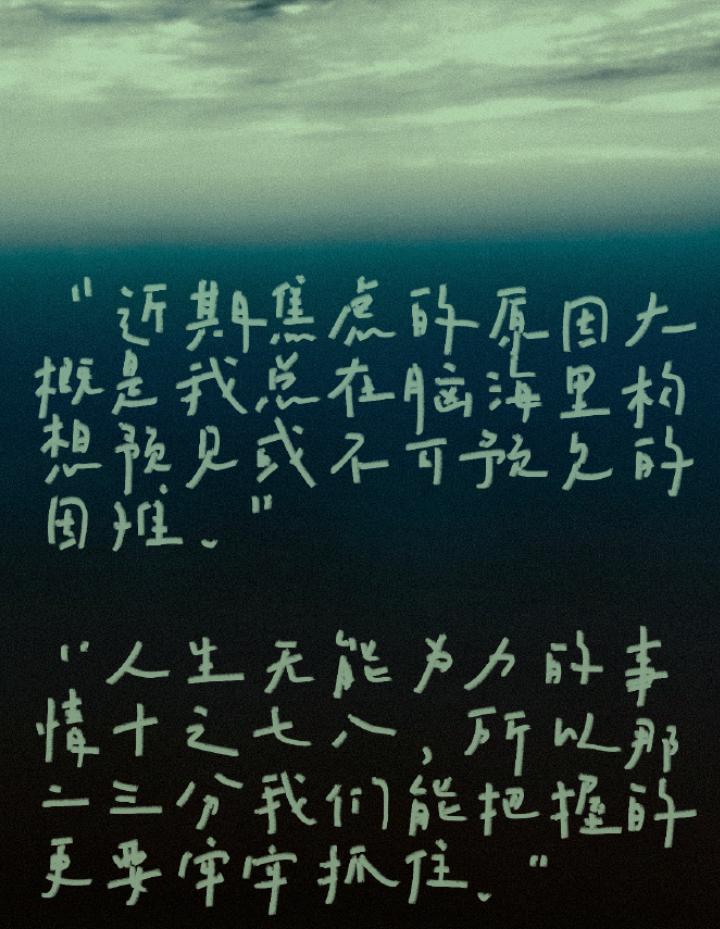 “近期焦虑的原因大
概是我总在脑海里构
想预见或不可预见的
困难。”
“人生无能为力的事
情十之七八，所以那
二三分我们能把握的
更要牢牢抓住。”